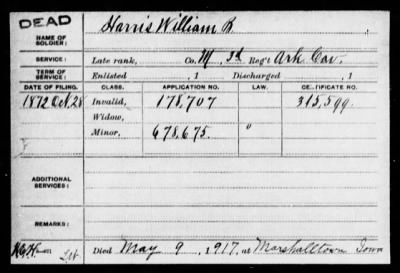 DEAD
NAME OF SOLDIER: Harris William R
SERVICE: Late rank, Co. M, 3d Reg't Ark Cav.
TERM OF SERVICE: Enlisted , 1 Discharged , 1
DATE OF FILING. CLASS. APPLICATION NO. LAW. CERTIFICATE NO.
1872 Oct. 28 Invalid, 178,707 315,599
Widow,
Minor, 678,675 "
ADDITIONAL SERVICES:
REMARKS:
Died May 9, 1917, at Marshalltown Iowa